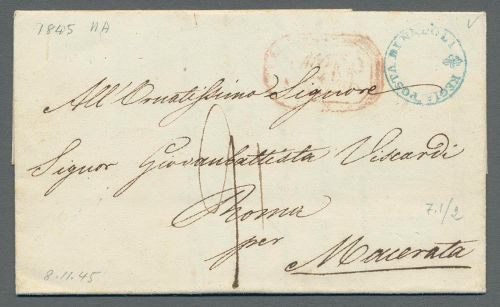 1845 NA
REGIE POSTE DI NAPOLI
All'Ornatissimo Signore
Signor Giovanbattista Viscardi
Roma
7.1/2
per
Macerata
8.11.45